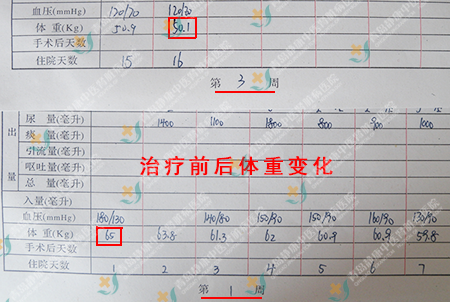 血压(mmHg) 120/70 120/70
体 重(Kg) 50.9 50.1
手术后天数
住院天数 15 16
第 3 周
尿 量(毫升) 1400 1100 1800 800 900 1000
出 痰 量(毫升)
引流量(毫升)
呕吐量(毫升)
量 总 量(毫升)
治疗前后体重变化
入量(毫升)
血压(mmHg) 180/130 140/80 150/90 150/90 160/90 130/90
体 重(Kg) 65 63.8 61.3 62 60.9 60.9 59.8
手术后天数
住院天数 1 2 3 4 5 6 7
第 1 周